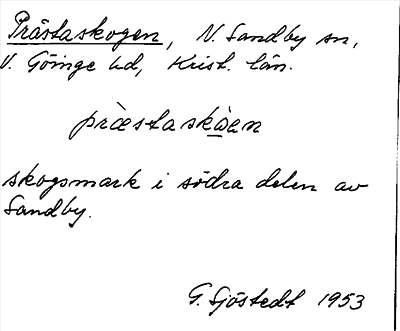 Prästaskogen, N. Sandby sn,
V. Göinge hd, Krist. län.
præ̀staskὼen
skogsmark i södra delen av
Sandby.
G. Sjöstedt 1953